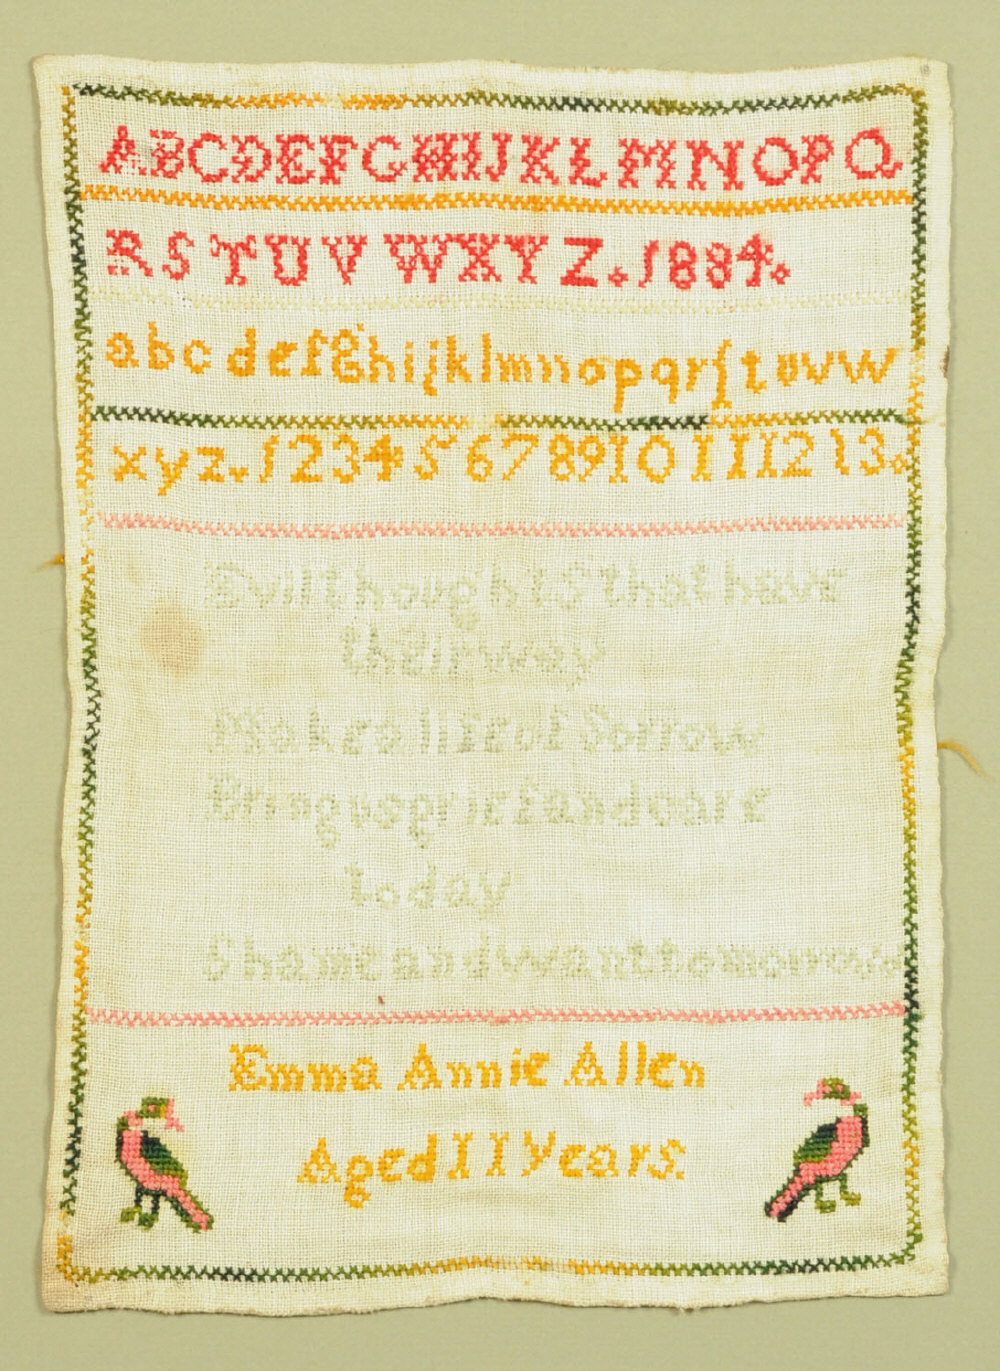 ABCDEFGHIJKLMNOPQ
RSTUVWXYZ.1884.
abcdefghijklmnopqrſtuvw
xyz.12345678910 11 12 13.
Evil thoughts that have
their way
Makes a life of Sorrow
Bring us grief and care
to day
Shame and want tomorrow
Emma Annie Allen
Aged 11 years.